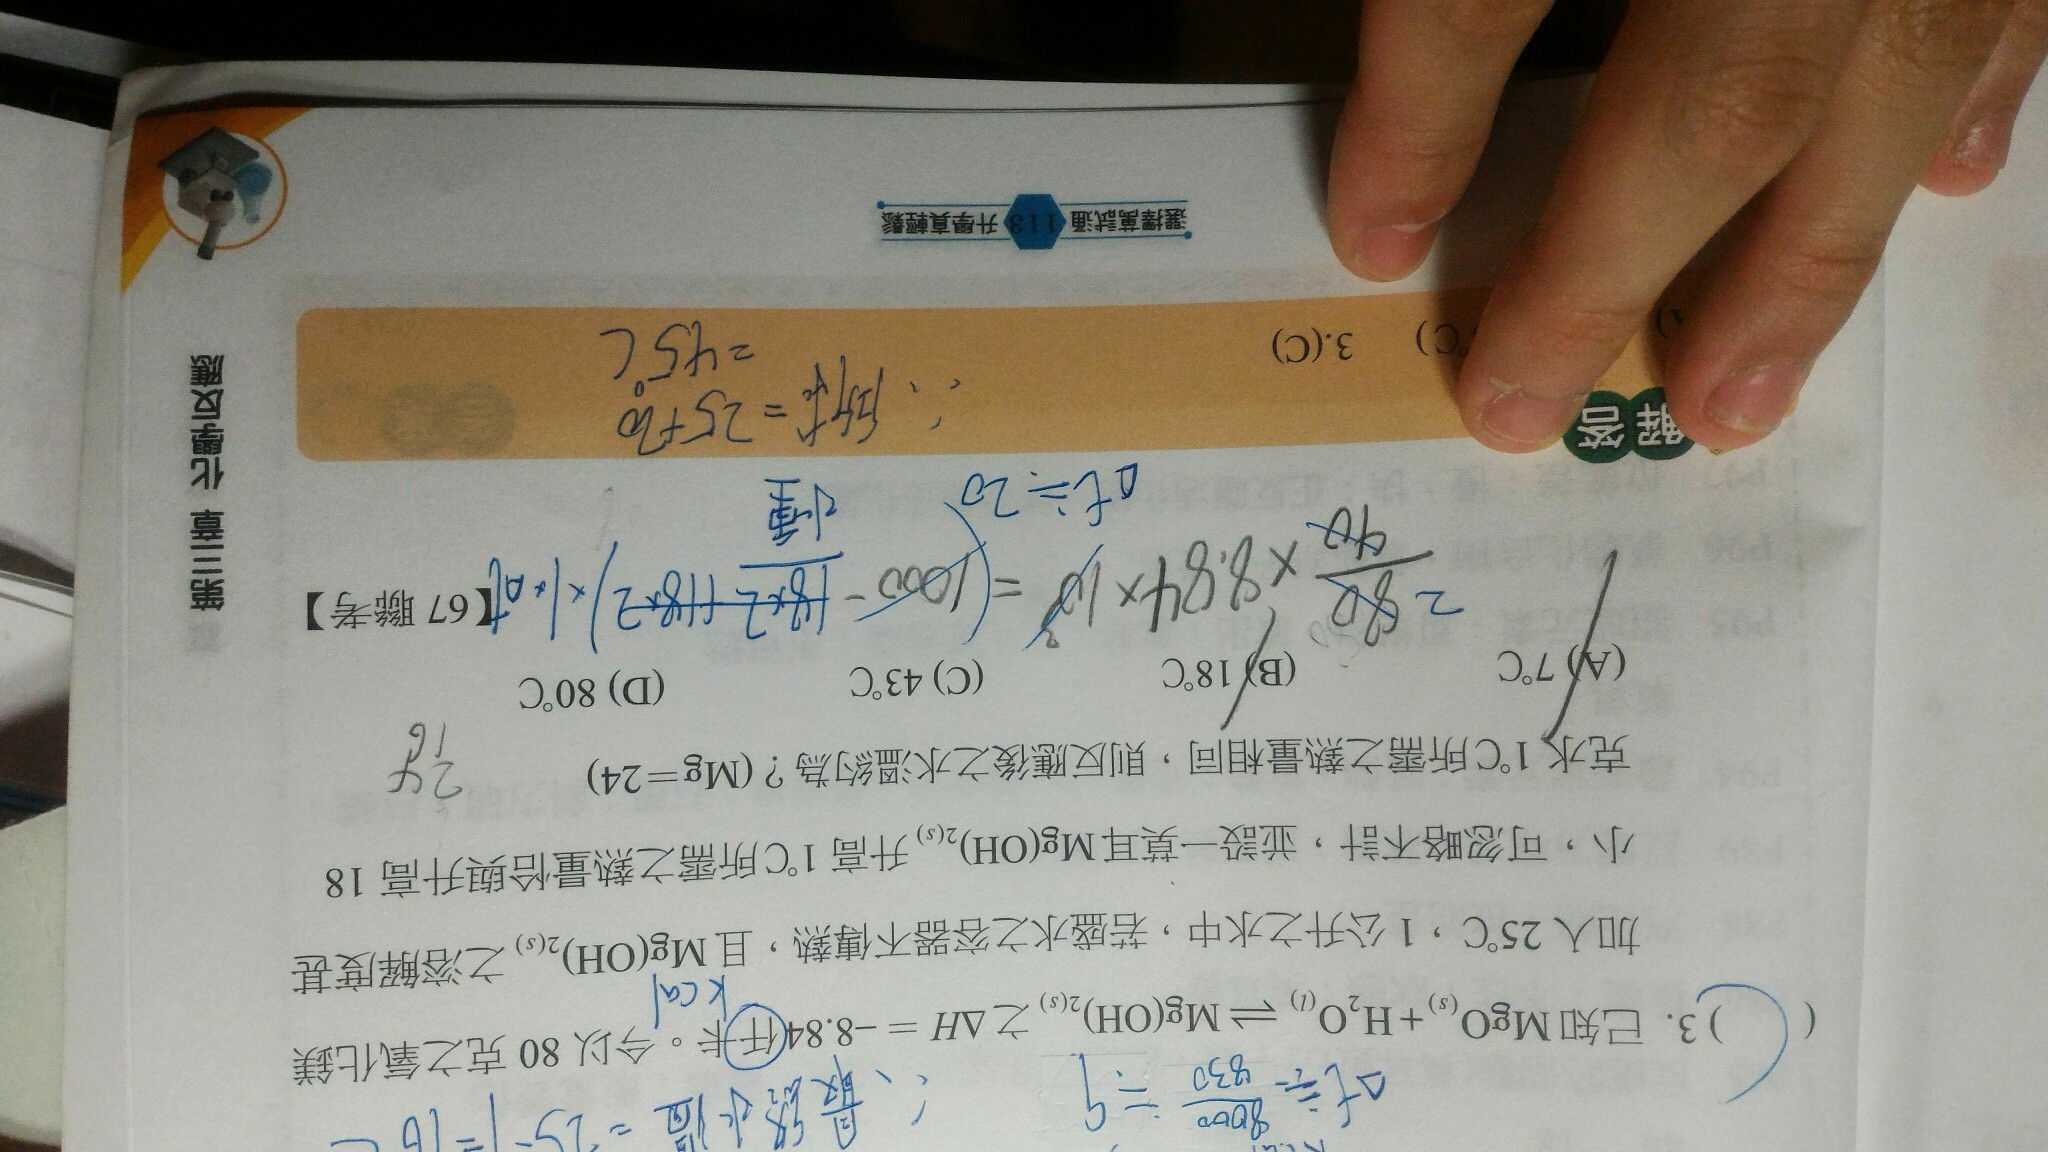 ∴最終水溫 = 25-9=16℃
Δt≒8000/830≒9
( C )3. 已知 MgO(s)+H2O(l) ⇌ Mg(OH)2(s) 之 ΔH = −8.84 仟卡。今以 80 克之氧化鎂
kcal
加入 25℃，1 公升之水中，若盛水之容器不傳熱，且 Mg(OH)2(s) 之溶解度甚
小，可忽略不計，並設一莫耳 Mg(OH)2(s) 升高 1℃所需之熱量恰與升高 18
克水 1℃所需之熱量相同，則反應後之水溫約為？(Mg=24)
24
16
(A) 7℃ (B) 18℃ (C) 43℃ (D) 80℃
【67 聯考】
2 80/40 × 8.84 × 10³ = (1000 − 18×2+18×2) × 1×Δt
水重
Δt≒20
解答
3.(C)
∴所求=25+20
=45℃
選擇萬試通 113 升學真輕鬆
第三章 化學反應